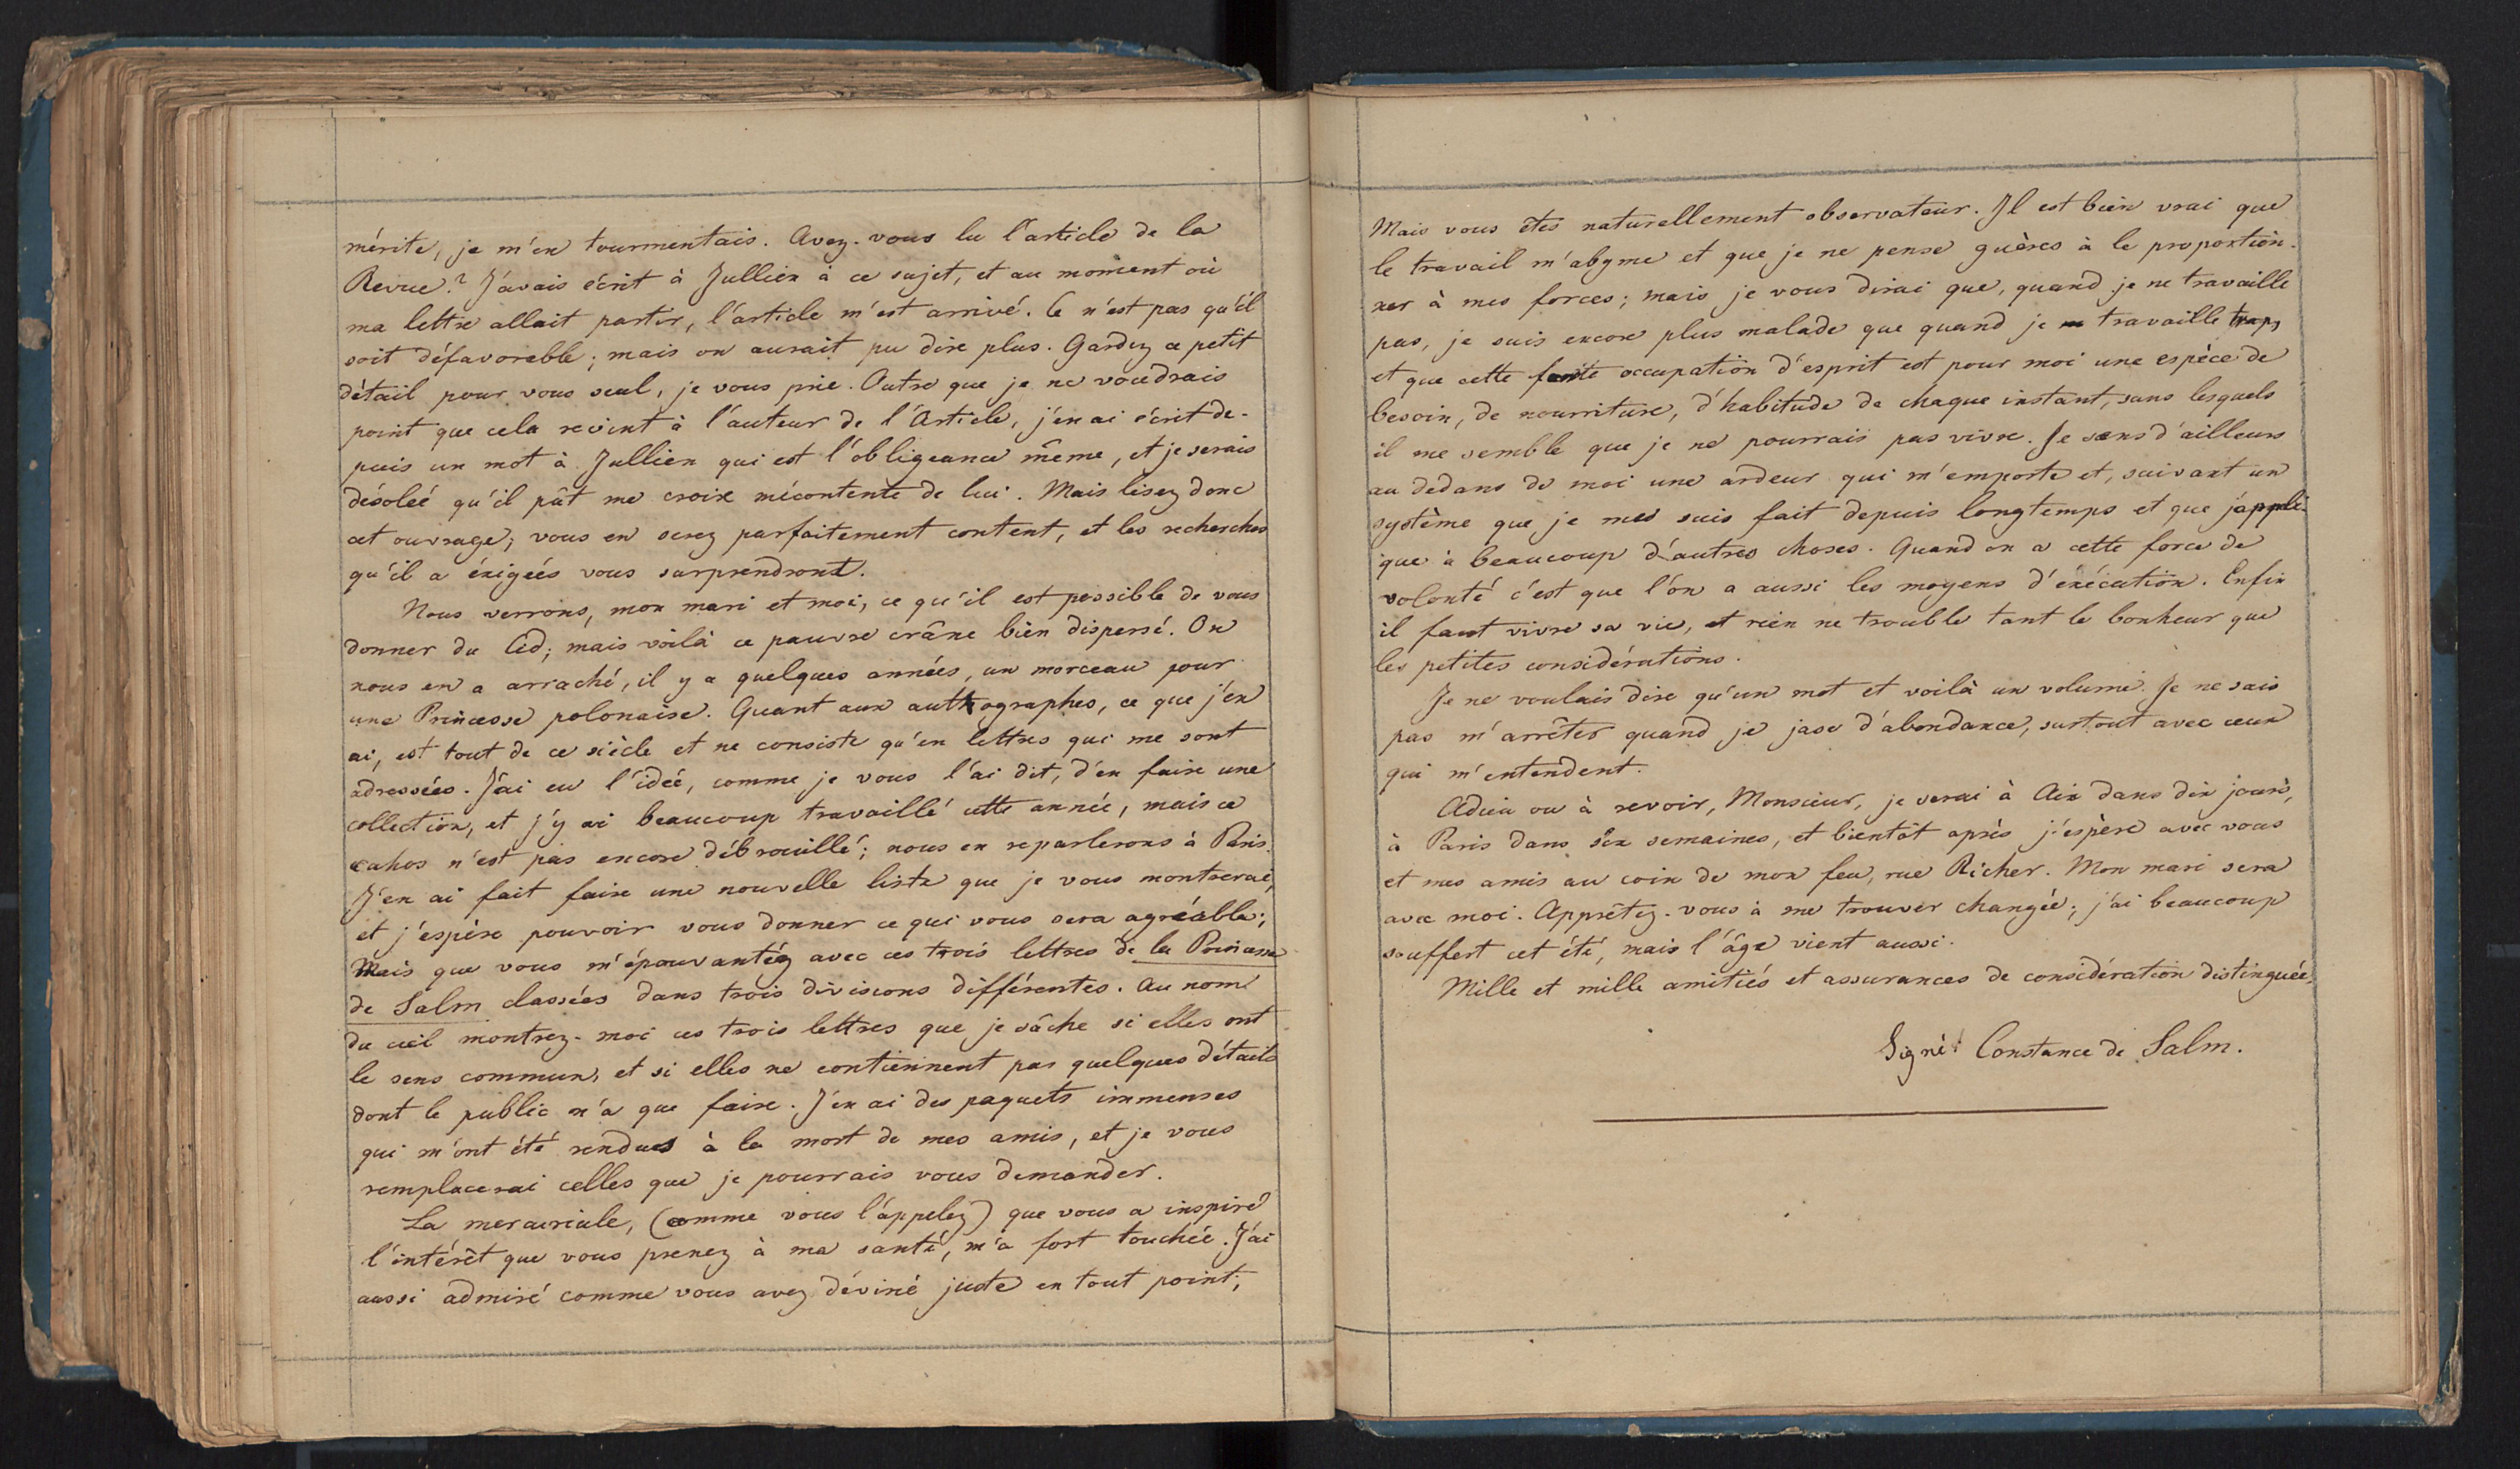 mérite, je m'en tourmentais. Avez-vous lu l'article de la
Revue? J'avais écrit à Jullien à ce sujet, et au moment où
ma lettre allait partir, l'article m'est arrivé. Ce n'est pas qu'il
soit défavorable; mais on aurait pu dire plus. Gardez ce petit
détail pour vous seul, je vous prie. Outre que je ne voudrais
point que cela revînt à l'auteur de l'Article, j'en ai écrit de-
puis un mot à Jullien qui est l'obligeance même, et je serais
désolée qu'il pût me croire mécontente de lui. Mais lisez donc
cet ouvrage; vous en serez parfaitement content, et les recherches
qu'il a éxigées vous surprendront.
Nous verrons, mon mari et moi, ce qu'il est possible de vous
donner du Cid; mais voilà ce pauvre crâne bien dispersé. On
nous en a arraché, il y a quelques années, un morceau pour
une Princesse polonaise. Quant aux authographes, ce que j'en
ai, est tout de ce siècle et ne consiste qu'en lettres qui me sont
adressées. J'ai eu l'idée, comme je vous l'ai dit, d'en faire une
collection, et j'y ai beaucoup travaillé cette année, mais ce
cahos n'est pas encore débrouillé; nous en reparlerons à Paris.
J'en ai fait faire une nouvelle liste que je vous montrerai,
et j'espère pouvoir vous donner ce qui vous sera agréable;
Mais que vous m'épouvantéz avec ces trois lettres de la Princesse
de Salm classées dans trois divisions différentes. Au nom
du ciel montrez-moi ces trois lettres que je sâche si elles ont
le sens commun, et si elles ne contiennent pas quelques détails
dont le public n'a que faire. J'en ai des paquets immenses
qui m'ont été rendues à la mort de mes amis, et je vous
remplacerai celles que je pourrais vous demander.
La mercuriale, (comme vous l'appelez) que vous a inspiré
l'intérêt que vous prenez à ma santé, m'a fort touchée. J'ai
aussi admiré comme vous avez déviné juste en tout point;
Mais vous êtes naturellement observateur. Il est bien vrai que
le travail m'abyme et que je ne pense guères à le proportion-
ner à mes forces; mais je vous dirai que, quand je ne travaille
pas, je suis encore plus malade que quand je travaille trop,
et que cette forte occupation d'esprit est pour moi une espèce de
besoin, de nourriture, d'habitude de chaque instant, sans lesquels
il me semble que je ne pourrais pas vivre. Je sens d'ailleurs
au dedans de moi une ardeur qui m'emporte et, suivant un
système que je me suis fait depuis longtemps et que j'appli-
que à beaucoup d'autres choses. Quand on a cette force de
volonté c'est que l'on a aussi les moyens d'éxécution. Enfin
il faut vivre sa vie, et rien ne trouble tant le bonheur que
les petites considérations.
Je ne voulais dire qu'un mot et voilà un volume. Je ne sais
pas m'arrêter quand je jase d'abondance, surtout avec ceux
qui m'entendent.
Adieu ou à revoir, Monsieur, je serai à Aix dans dix jours,
à Paris dans six semaines, et bientôt après j'espère avec vous
et mes amis au coin de mon feu, rue Richer. Mon mari sera
avec moi. Apprêtez-vous à me trouver changée; j'ai beaucoup
souffert cet été, mais l'âge vient aussi.
Mille et mille amitiés et assurances de considération distinguée,
Signé: Constance de Salm.